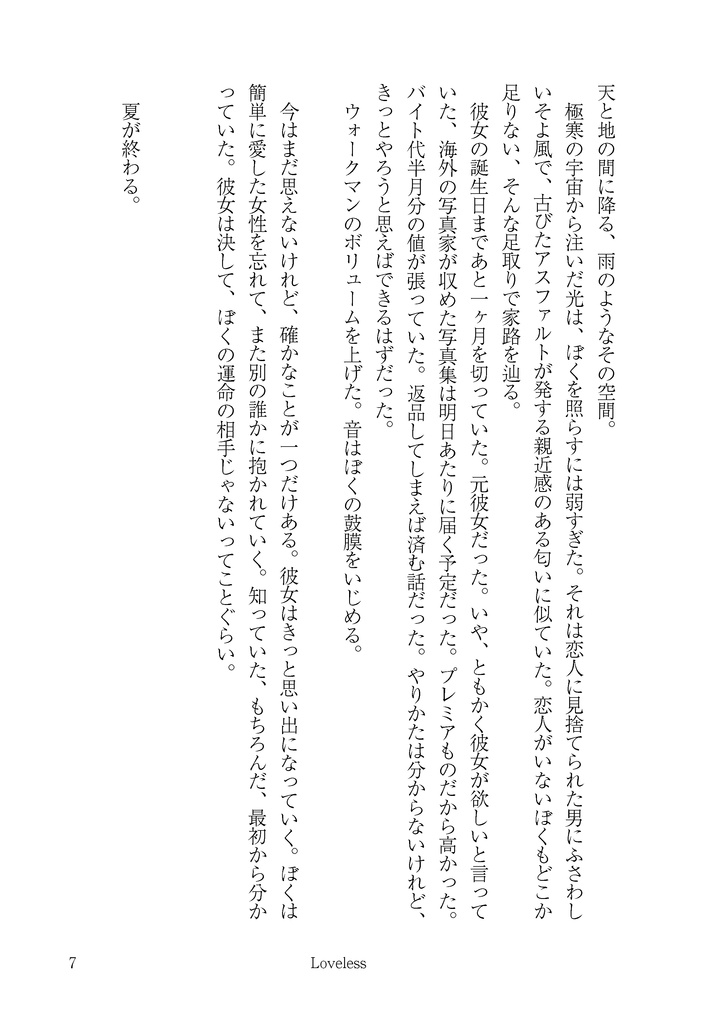 天と地の間に降る、雨のようなその空間。
極寒の宇宙から注いだ光は、ぼくを照らすには弱すぎた。それは恋人に見捨てられた男にふさわし
いそよ風で、古びたアスファルトが発する親近感のある匂いに似ていた。恋人がいないぼくもどこか
足りない、そんな足取りで家路を辿る。
彼女の誕生日まであと一ヶ月を切っていた。元彼女だった。いや、ともかく彼女が欲しいと言って
いた、海外の写真家が収めた写真集は明日あたりに届く予定だった。プレミアものだから高かった。
バイト代半月分の値が張っていた。返品してしまえば済む話だった。やりかたは分からないけれど、
きっとやろうと思えばできるはずだった。
ウォークマンのボリュームを上げた。音はぼくの鼓膜をいじめる。
今はまだ思えないけれど、確かなことが一つだけある。彼女はきっと思い出になっていく。ぼくは
簡単に愛した女性を忘れて、また別の誰かに抱かれていく。知っていた、もちろんだ、最初から分か
っていた。彼女は決して、ぼくの運命の相手じゃないってことぐらい。
夏が終わる。
7
Loveless